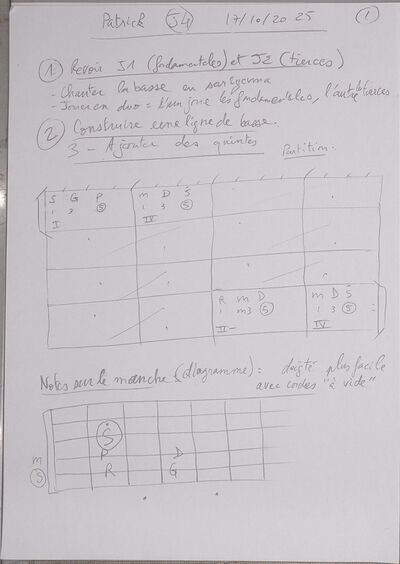 Patrick J4 17/10/2025 1
1 Revoir J1 (fondamentales) et J2 (tierces)
- Chanter la basse en sargam
- Jouer en duo = l'un joue les fondamentales, l'autre les tierces
2 Construire une ligne de basse.
3 - Ajouter des quintes Partition
S G P m D Ṡ
1 3 5 1 3 5
I IV
R m D m D Ṡ
1 m3 5 1 3 5
II- IV
Notes sur le manche (diagramme) : doigté plus facile
avec cordes "à vide"
Ṡ
m P D
S R G